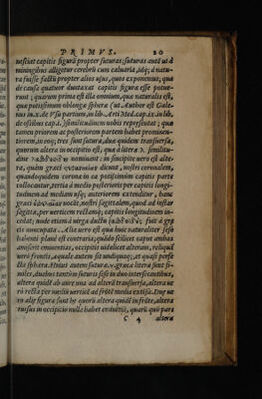 PRIMVS. 20
nesciut capitis figurã propter futuras: futuras aut ut d
miningibus alligetur cerebrũ cum caluaria, idq; à natu
ra fuisse factũ propter alios usus, quos exponemus, quæ
de causa quatuor duntaxat capitis figuræ esse potue-
runt: quarum prima est illa omnium, quæ naturalis est,
quæ potissimum oblongæ spheræ (ut Author est Gale-
nus in.x. de Vsu partium, in lib. Arti Med. cap.xx. in lib.
de Ossibus cap.
tamen priorem ac posteriorem partem habet prominen-
tiorem, in eoq; tres sunt futuræ, duæ quidem transuersæ,
quarum altera in occipitio est, quæ à litera similitu-
dine nominant: in sincipite uero est alte-
ra, quam græci dicunt, nostri coronalem,
quandoquidem corona in ea potissimum capitis parte
collocantur, tertia à medio posterioris per capitis longi-
tudinem ad medium usq; anteriorem extenditur, hanc
græci uocãt, nostri sagittalem, quod ad instar
sagittæ, per uerticem reclamq; capitis longitudinem in-
cedat: unde etiam à uirga ductu fuit a græ
cis nuncupata. Alia uero est quæ huic naturaliter sese
habenti planè est contraria, quãdo scilicet caput ambas
amiserit eminentias, occipitis uidelicet alteram, reliquã
uerò frontis, æquale autem sit undiquaq; et quasi perfe
cta sphæra. Huius autem futuræ græcæ literæ sunt si-
miles, duabus tantũm futuris sese in duo intersecantibus,
altera quidẽ ab aure una ad alterã transuersa, altera ue
rò recta per mediũ uerticẽ ad frõtẽ mediã extẽsa. Duæ ue
rò aliæ figuræ sunt huic alterã quidẽ in frõte, altera
rursus in occipitio nulla habet eminẽtia, quarũ quæ pars
C 4 altera